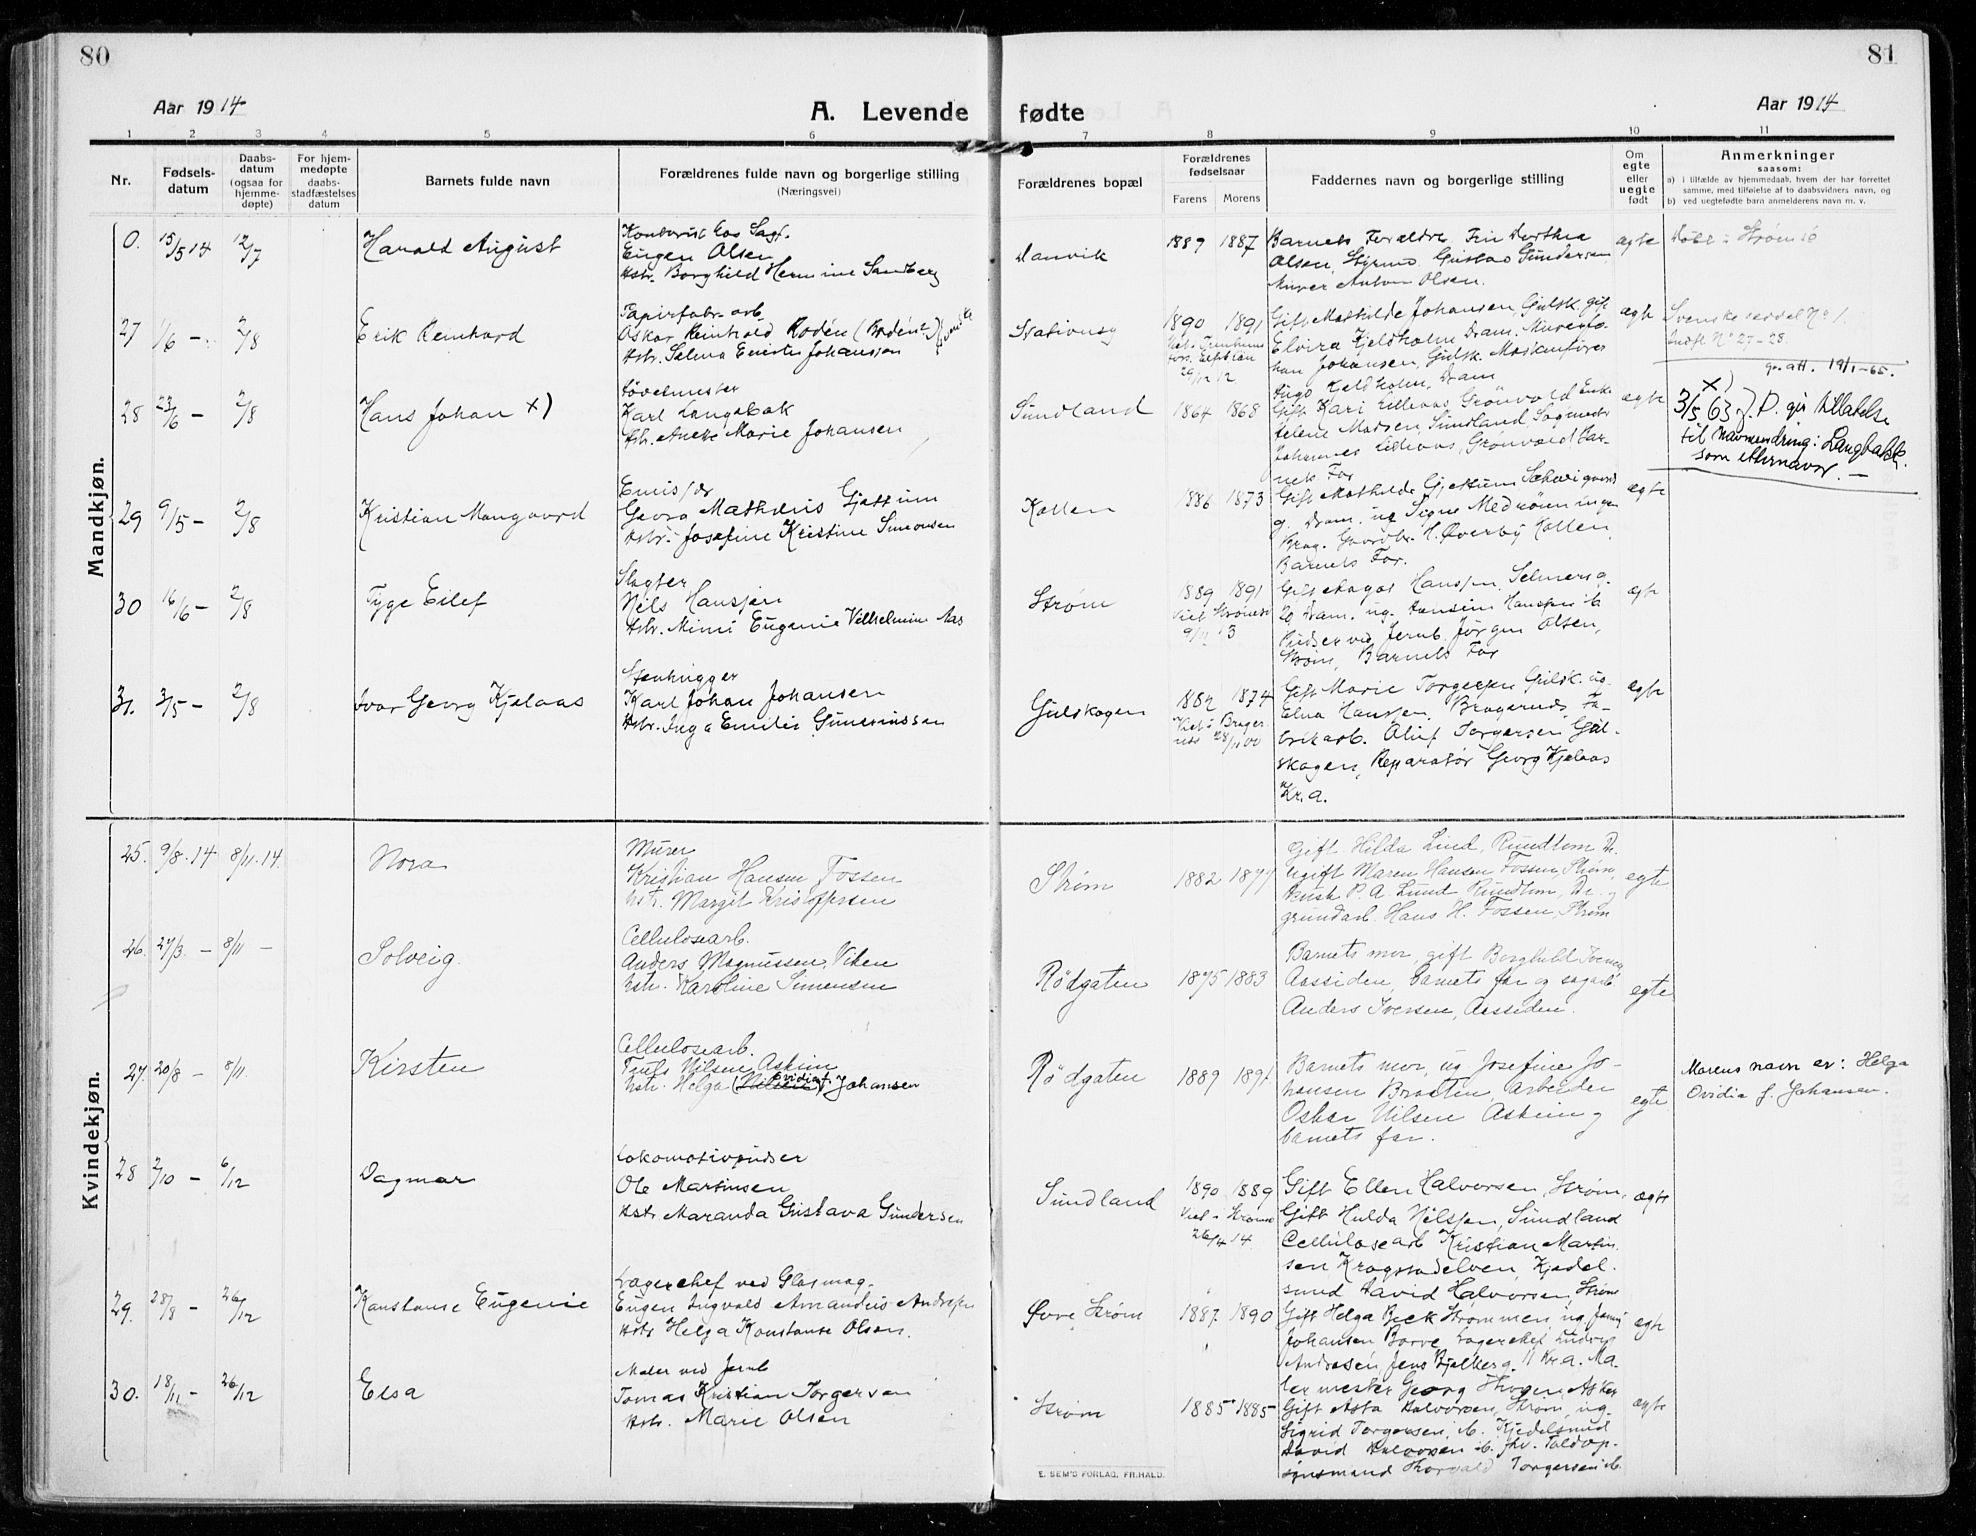 80
81
Aar 1914
A. Levende fødte
Aar 1914
1 2 3 4 5 6 7 8 9 10 11
Nr.
Fødsels-
datum
Daabs-
datum
(ogsaa for
hjemme-
døpte)
For hjem-
medøpte
daabs-
stadfæstelses
datum
Barnets fulde navn
Forældrenes fulde navn og borgerlige stilling
(Næringsvei)
Forældrenes bopæl
Forældrenes
fødselsaar
Farens Morens
Faddernes navn og borgerlige stilling
Om
egte
eller
uegte
født
Anmerkninger
saasom:
a) i tilfælde av hjemmedaab, hvem der har forrettet
samme, med tilføielse af to daabsvidners navn, og
b) ved uegtefødte barn anmelderens navn m. v.
Mandkjøn.
0. 15/5 14 12/7 Harald August
Eugen Olsen
Hstr. Borghild Hermine Sandberg
Danvik
1889 1887
Barnets Forældre, Frk Dorthea
Olsen, Styrmd. Gustav Gundersen
Murer Anton Olsen.
ægte
Døbt i Strømsø
27 1/6 — 2/8 Erik Reinhard
Papirfabr. arb.
Oskar Reinhold Rodén (Bodén)
Hstr. Selma Johansson
1890 1891
29/12 12
Gift Mathilde Johansen, Gulsk. gift
Elvira Kjeldholm Dram.
Johansen, Gulsk. Maskinfører
Hugo Kjeldholm, Dram
ægte
Svenske seddel No 1.
Indft No 27-28.
28 23/6 — 2/8 Hans Johan x)
Karl Langebak
Hstr. Anette Marie Johansen
Sundland
1864 1868
Gift Kari Lilleaas Grønvold Enke
Helene Madsen, Sundland, Sagmester
Johannes Lilleaas, Grønvold, Bar-
nets Far
ægte
gr. att. 19/1-65.
x)
3/5 63 J. D. gir tillatelse
til navnendring: Langbakk
som etternavn. —
29 9/5 — 2/8 Kristian Mangaard
Georg Mathæus Gjettum
Hstr. Josefine Kristine Simonsen
Kollen
1886 1873
Gift Mathilde Gjettum
g. Dram. ug Signe
Brag. Gaardbr. H. Øverby Kollen,
Barnets Far.
ægte
30 16/6 — 2/8 Tyge Eilef
Slagter
Nils Hanssen
Hstr. Mimi Eugenie Vilhelmine Aas
Strøm
1889 1891
9/11 13
Gift Aagot Hanssen, Selmersg.
Pudser ved Jernb. Jørgen Olsen,
Strøm, Barnets Far
ægte
31. 3/5 — 2/8 Ivar Georg Kjelaas
Stenhugger
Karl Johan Johansen
Hstr. Inga Emilie
Gulskogen
1882 1874
Viet i Brager-
nes 28/11 00
Gift Marie Torgersen Gulsk. ug.
Elna Hanssen, Bragernes, Fa-
brikarb. Oluf Torgersen Gul-
skogen, Reparatør Georg Kjelaas
Kr.a.
ægte
Kvindekjøn.
25. 9/8 - 14 8/11.14. Nora
Murer
Kristian Hansen Fossen
hstr. Margit Kristoffersen
Strøm
1882 1877
Gift Hilda Lind, Rundtom Dr.
Ugift Maren Hansen Fossen, Strøm,
P. A. Lund Rundtom, Dr. og
grundarb. Hans H. Fossen, Strøm
egte
26. 27/3 — 8/11 — Solveig.
Cellulosearb.
Anders Magnussen Viken
hstr. Karoline Simensen
Rødgaten
1875 1883
Barnets mor, gift Borghild Iversen
Aassiden, barnets far og sagarb.
Anders Iversen, Aassiden.
egte
27. 20/8 — 8/11. Kirsten
Cellulosearb.
Truls Nilsen Askim
hstr. Helga (Nilsen) Ovidia f. Johansen
Rødgaten
1889 1891
Barnets mor, ug Josefine Jo-
hansen Braaten, arbeider
Oskar Nilsen Askim og
barnets far.
egte
Morens navn er: Helga
Ovidia f. Johansen.
28 2/10 — 6/12 Dagmar
Lokomotivpudser
Ole Martinsen
Hstr. Maranda Gustava Gundersen
Sundland
1890 1889
Viet i Strømsø
26/4 14
Gift Ellen Halvorsen, Strøm,
Gift Hulda Nilssen, Sundland
Cellulosearb Kristian Martin-
sen, Kragstadelven, Kjødel-
sund David Halvorsen, Strøm
ægte
29. 28/8 — 26/12 Konstanse Eugenie
Lagerchef ved Glasmag.
Eugen Ingvald Amandus Andresen
Hstr Helga Konstanse Olsen.
Øvre Strøm
1887. 1890
Gift Helga Beck Strømmen, ug. Jenny
Johansen Borve, Lagerchef Ludvig
Andresen, Jens Bjelkes g. 11 Kr.a. Ma-
lermester Georg Skogen, Asker
ægte
30. 18/11 — 26/12 Elsa
Maler ved Jernb
Tomas Kristian Torgersen
Hstr. Marie Olsen
Strøm
1885 1885
Gift Asta Halvorsen, Strøm, ug.
Sigrid Torgersen, ib. Kjedelsmed
David Halvorsen ib. fhv. Toldop-
synsmand Thorvald Torgersen ib.
ægte
E. SEM'S FORLAG, FR.HALD.